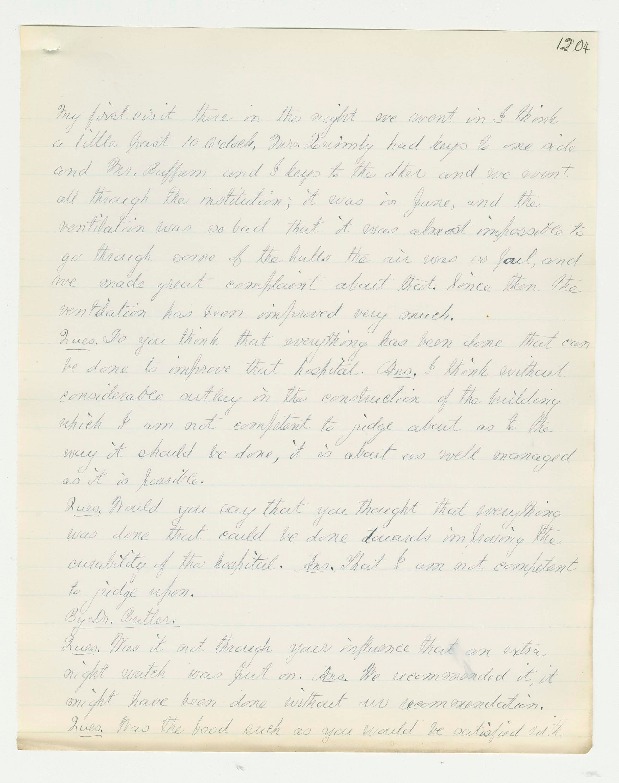 1204
My first visit there in the night we went in I think
a little past 10 o'clock, Mrs. had keys to one side
and Mr. Buffum and I keys to the other and we went
all through the institution; it was in June, and the
ventilation was so bad that it was almost impossible to
go through some of the halls the air was so foul, and
we made great complaint about that. Since then the
ventilation has been improved very much.
Ques. Do you think that everything has been done that can
be done to improve that hospital. Ans. I think without
considerable outlay in the construction of the building
which I am not competent to judge about as to the
way it should be done, it is about as well managed
as it is possible.
Ques. Would you say that you thought that everything
was done that could be done towards improving the
curability of the hospital. Ans. That I am not competent
to judge upon.
By Dr. Butler.
Ques. Was it not through your influence that an extra
night watch was put on. Ans. We recommended it; it
might have been done without us recommendation.
Ques. Was the food such as you would be satisfied with